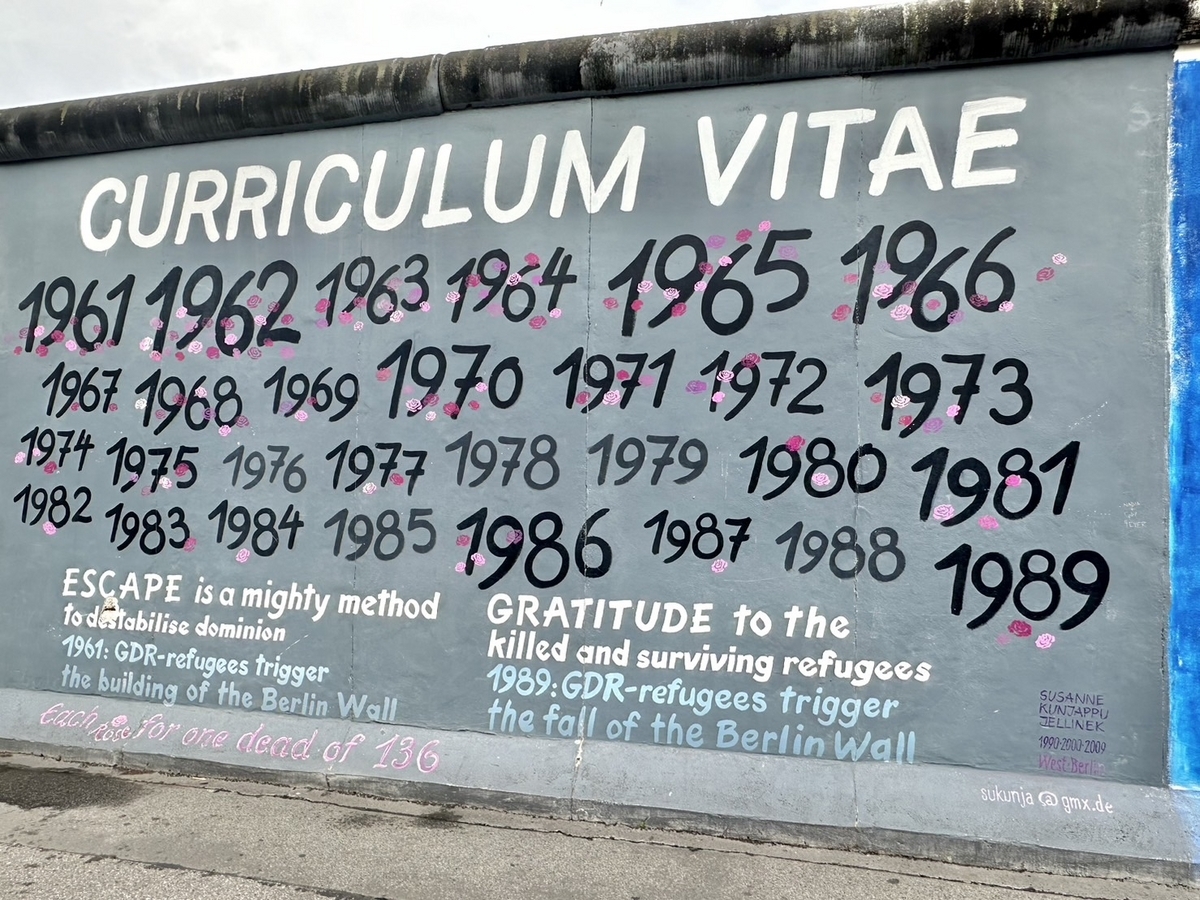 CURRICULUM VITAE
1961 1962 1963 1964 1965 1966
1967 1968 1969 1970 1971 1972 1973
1974 1975 1976 1977 1978 1979 1980 1981
1982 1983 1984 1985 1986 1987 1988 1989
ESCAPE is a mighty method
to destabilise dominion
1961: GDR-refugees trigger
the building of the Berlin Wall
Each rose for one dead of 136
GRATITUDE to the
killed and surviving refugees
1989: GDR-refugees trigger
the fall of the Berlin Wall
SUSANNE
KUNJAPPU
JELLINEK
1990-2000-2009
West-Berlin
sukunja @ gmx.de